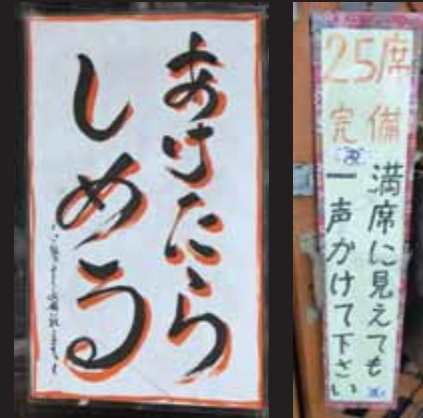 あけたら
しめる
25席
完備
満席に見えても
一声かけて下さい